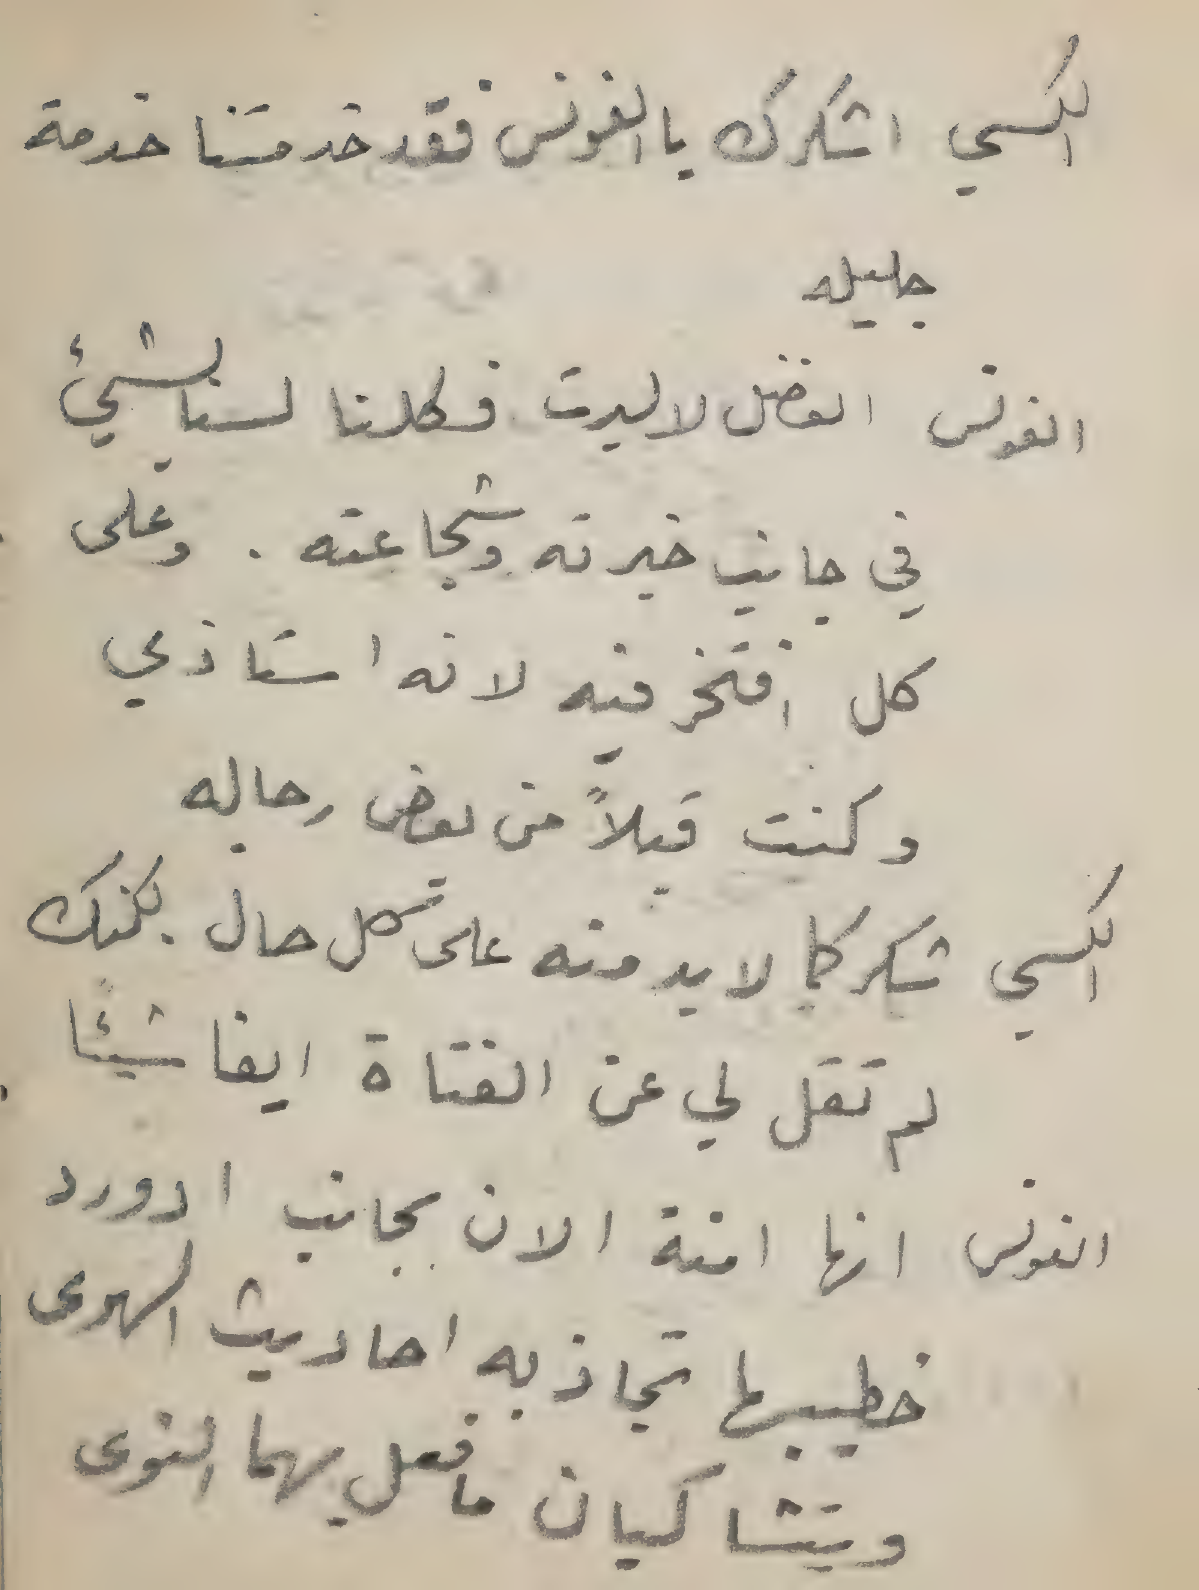 الكسي اشكرك يا الفونس فقد خدمتنا خدمة
جليله
الفونس الفضل لالبرت فكلنا لسنا بشيئ
في جانب خبرته وشجاعته . وعلى
كل افتخر فيه لانه استاذي
وكنت قبلاً من بعض رجاله
الكسي شكركما لا بد منه على كل حال لكنك
لم تقل لي عن الفتاة ايضا شيئًا
الفونس انها امنة الان بجانب ادورد
خطيبها تجاذبه احاديث الهوى
ويتشاكيان ما فعل بهما النوى